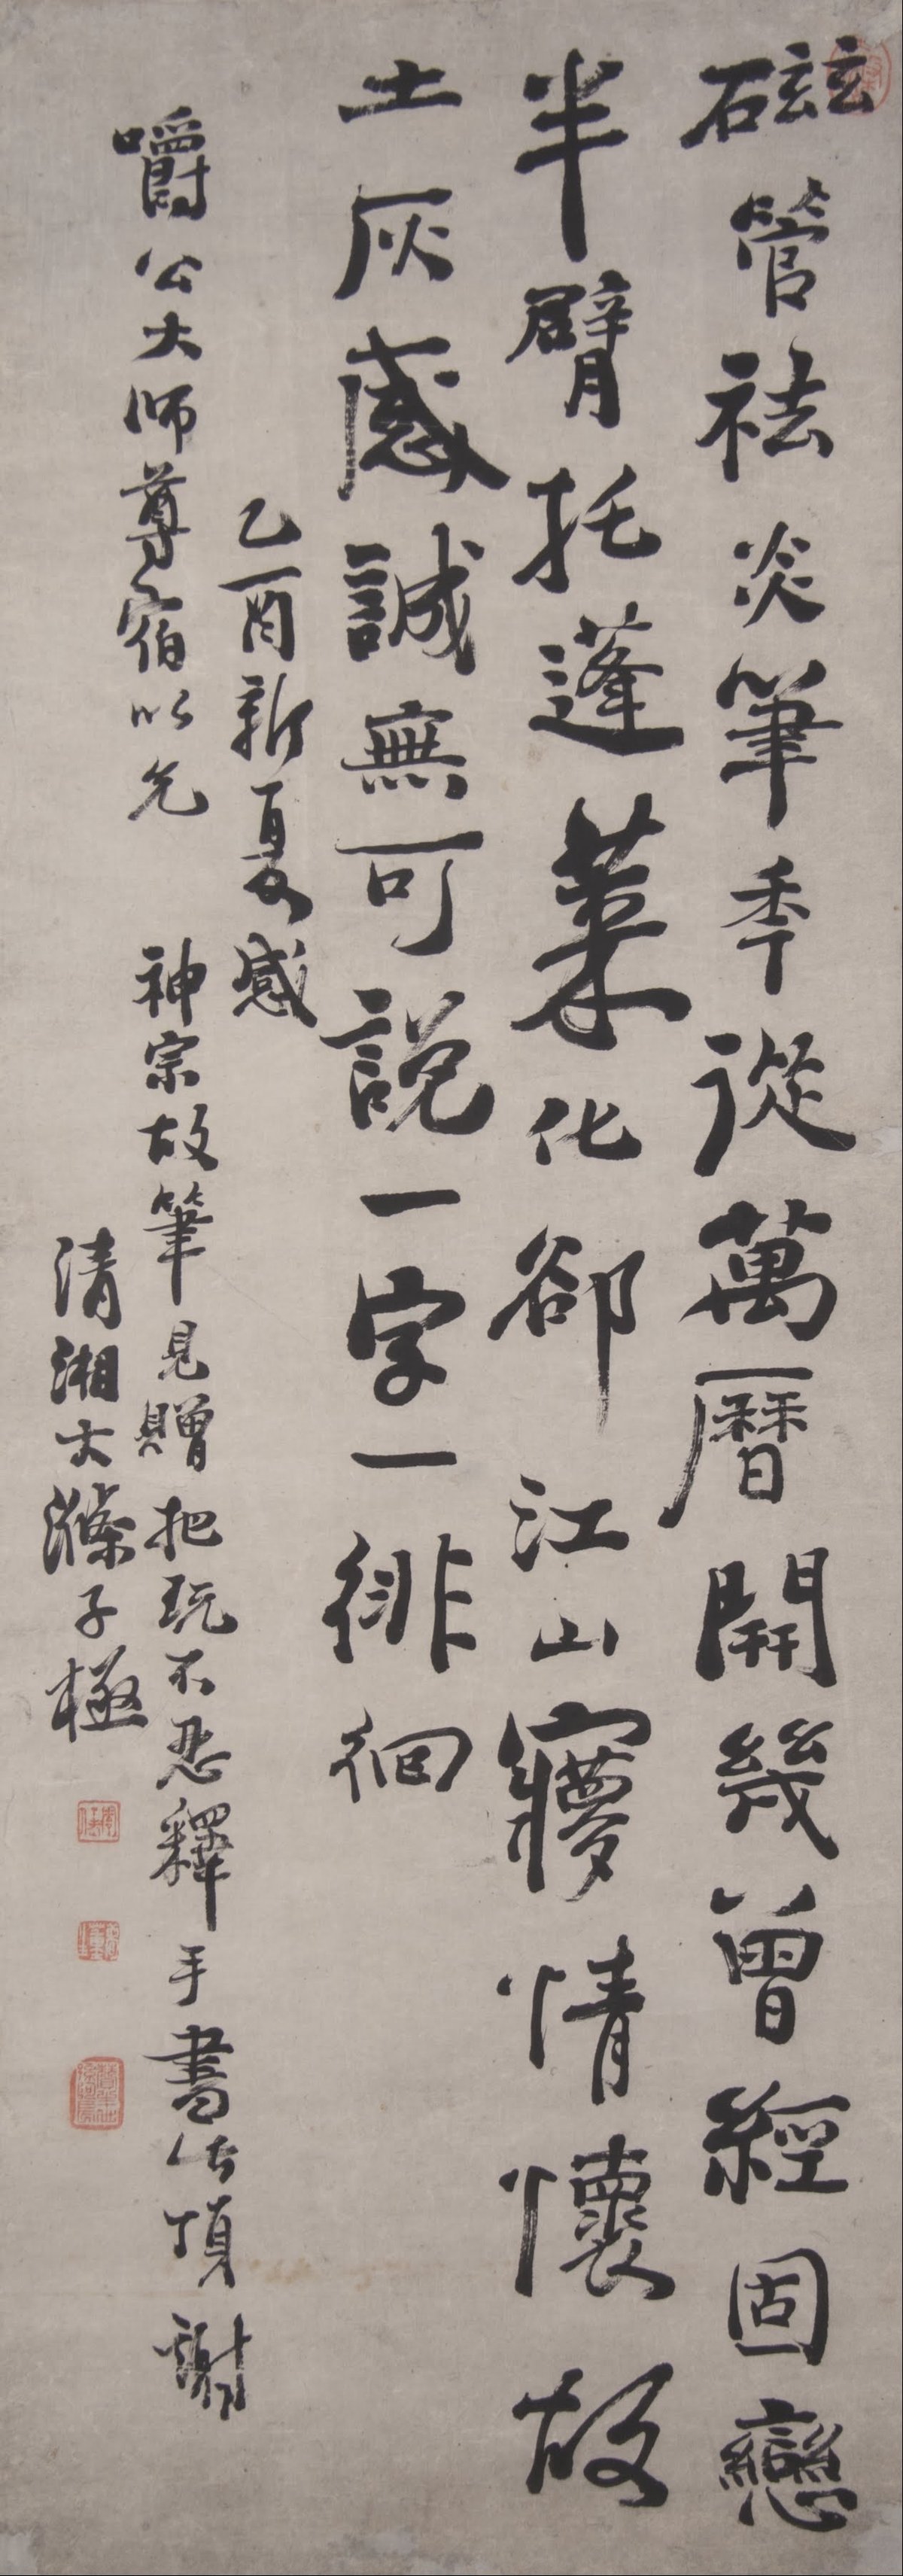 磁管祛炎筆秊從萬曆開幾曾經固戀
半臂托蓬萊化卻江山寢情懷故
土灰感誠無可說一字一徘徊
乙酉新夏感
嚼公大師尊宿以先
神宗故筆見贈把玩不忍釋手書此頂謝
清湘大滌子極